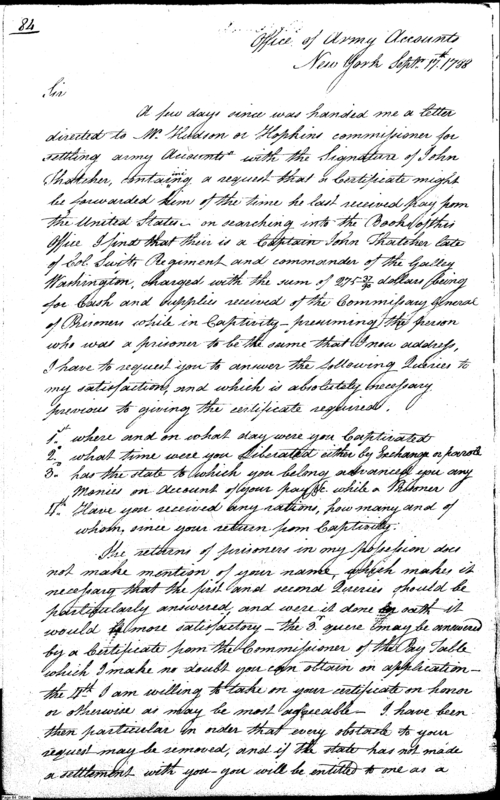 84
Office of Army Accounts
New York Septr. 17th. 1788
Sir
A few days since was handed me a letter
directed to Mr. Hudson or Hopkins commissioner for
settling army Accounts with the Signature of John
Thatcher, containing a request that a Certificate might
be forwarded him of the time he last received pay from
the United States - on searching into the Books of this
Office I find that their is a Captain John Thatcher late
of Col. Swifts Regiment and commander of the Galley
Washington, charged with the sum of 975 30/90 dollars being
for Cash and supplies received of the Commissary General
of Prisoners while in Captivity - presuming the person
who was a prisoner to be the same that I now address,
I have to request you to answer the following Queries to
my satisfaction, and which is absolutely necessary
previous to giving the certificate required.
1st. where and on what day were you Captivated
2d. what time were you Liberated either by Exchange or parole
3d. has the state to which you belong advanced you any
Monies on account of your pay &c. while a Prisoner
4th. Have you received any rations, how many and of
whom, since your return from Captivity.
The returns of prisoners in my posession does
not make mention of your name, which makes it
necessary that the first and second Queries should be
particularly answered, and were it done on oath it
would be more satisfactory - the 3d. quere may be answered
by a Certificate from the Commissioner of the Pay Table
which I make no doubt you can obtain on application -
the 4th. I am willing to take on your certificate on honor
or otherwise as may be most agreeable - I have been
then particular in order that every obstacle to your
request may be removed, and if the state has not made
a settlement with you - you will be entitled to one as a